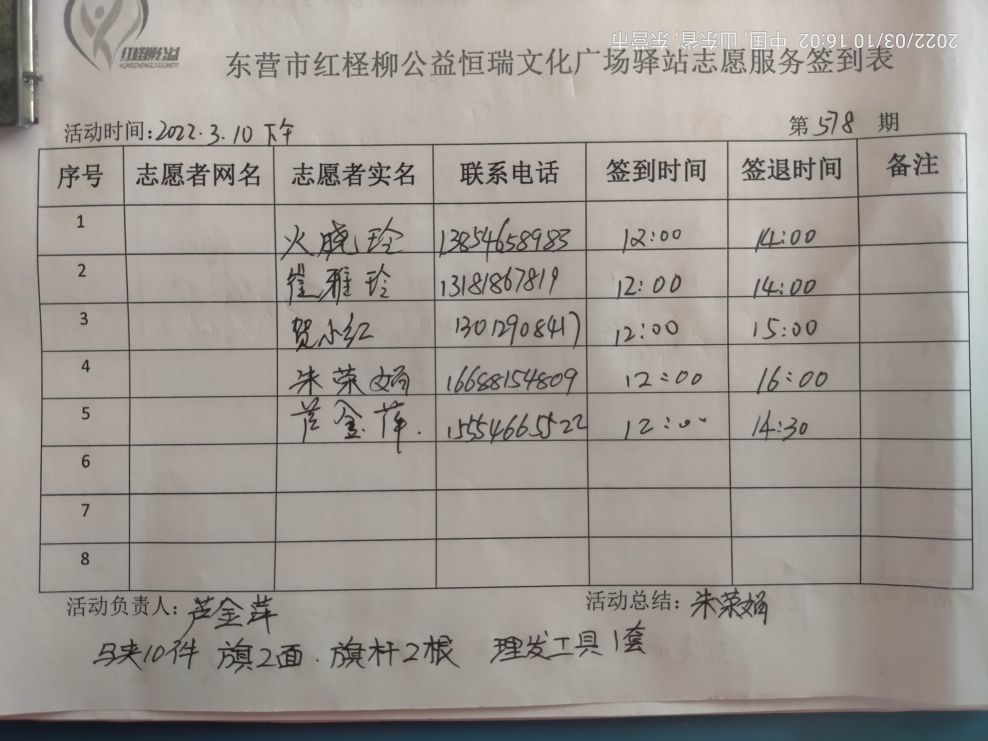 2022/03/10 16:02 中国, 山东省, 东营市
红柽柳公益
HONGCHENGLIUGONGYI
东营市红柽柳公益恒瑞文化广场驿站志愿服务签到表
活动时间:2022.3.10下午 第578期
序号 志愿者网名 志愿者实名 联系电话 签到时间 签退时间 备注
1 火晓玲 13854658983 12:00 14:00
2 崔雅玲 13181867819 12:00 14:00
3 贺小红 13012908417 12:00 15:00
4 朱荣娟 16688154809 12:00 16:00
5 芦金萍. 15554665522 12:00 14:30
6
7
8
活动负责人:芦金萍 活动总结:朱荣娟
马夹10件 旗2面.旗杆2根 理发工具1套